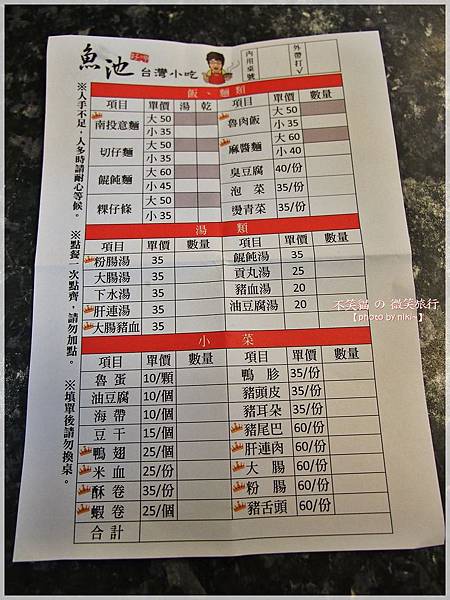 魚池 台灣小吃
內用桌號
外帶打✓
飯、麵類
項目 單價 湯 乾 項目 單價 數量
南投意麵 大 50 小 35 魯肉飯 大 50 小 35
切仔麵 大 50 小 35 麻醬麵 大 60 小 40
餛飩麵 大 60 小 45 臭豆腐 40/份
泡菜 35/份
粿仔條 大 50 小 35 燙青菜 35/份
湯類
項目 單價 數量 項目 單價 數量
粉腸湯 35 餛飩湯 35
大腸湯 35 貢丸湯 25
下水湯 35 豬血湯 20
肝連湯 35 油豆腐湯 20
大腸豬血 35
小菜
項目 單價 數量 項目 單價 數量
魯蛋 10/顆 鴨胗 35/份
油豆腐 10/個 豬頭皮 35/份
海帶 10/個 豬耳朵 35/份
豆干 15/個 豬尾巴 60/份
鴨翅 25/個 肝連肉 60/份
米血 25/份 大腸 60/份
酥卷 35/份 粉腸 60/份
蝦卷 25/個 豬舌頭 60/份
合計
※人手不足，人多時請耐心等候。
※點餐一次點齊，請勿加點。
※填單後請勿換桌。
不笑貓 の 微笑旅行
【photo by niki~】